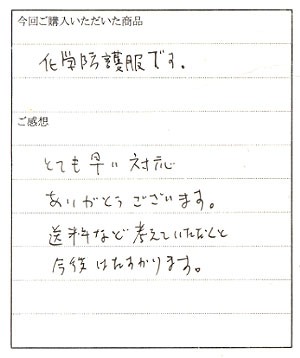 今回ご購入いただいた商品
化学防護服です。
ご感想
とても早い対応
ありがとうございます。
送料など考えていただくと
今後はたすかります。